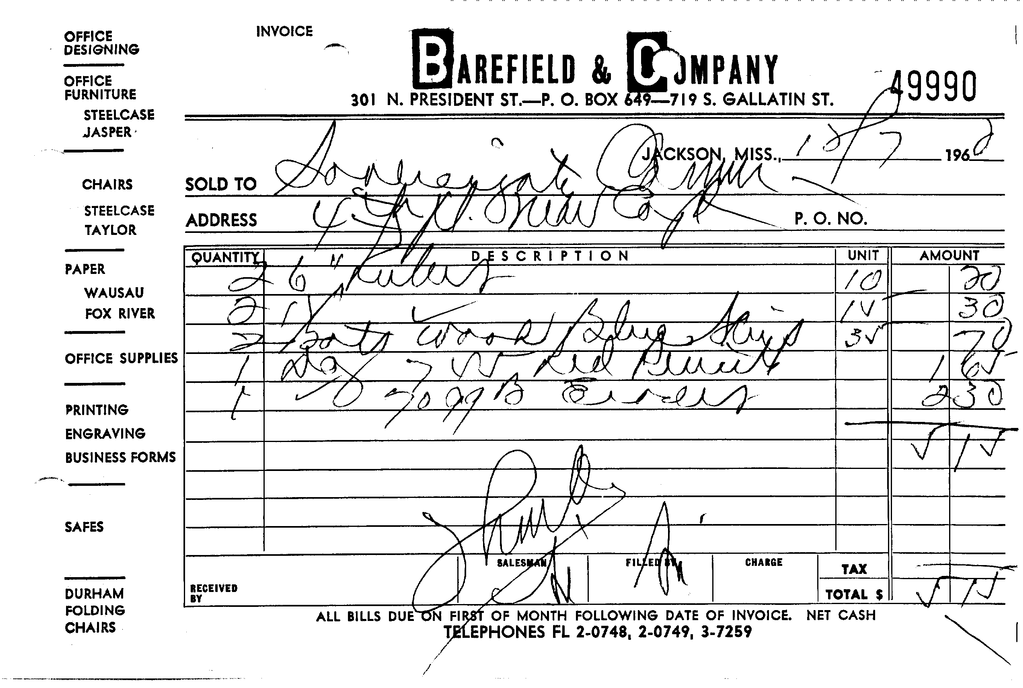 INVOICE
BAREFIELD & COMPANY
301 N. PRESIDENT ST.—P. O. BOX 649—719 S. GALLATIN ST.
49990
OFFICE DESIGNING
OFFICE FURNITURE
STEELCASE
JASPER
CHAIRS
STEELCASE
TAYLOR
PAPER
WAUSAU
FOX RIVER
OFFICE SUPPLIES
PRINTING
ENGRAVING
BUSINESS FORMS
SAFES
DURHAM FOLDING CHAIRS
JACKSON, MISS., 12/7 1960
SOLD TO Sovereignty Comm
ADDRESS P. O. NO.
QUANTITY DESCRIPTION UNIT AMOUNT
2 6" Rulers 10 20
2 15 30
2 35 70
1 745 Red Pencil 1 65
1 7099B Erasers 2 30
5 15
RECEIVED BY SALESMAN FILLED BY CHARGE TAX
TOTAL $ 5 15
ALL BILLS DUE ON FIRST OF MONTH FOLLOWING DATE OF INVOICE. NET CASH
TELEPHONES FL 2-0748, 2-0749, 3-7259